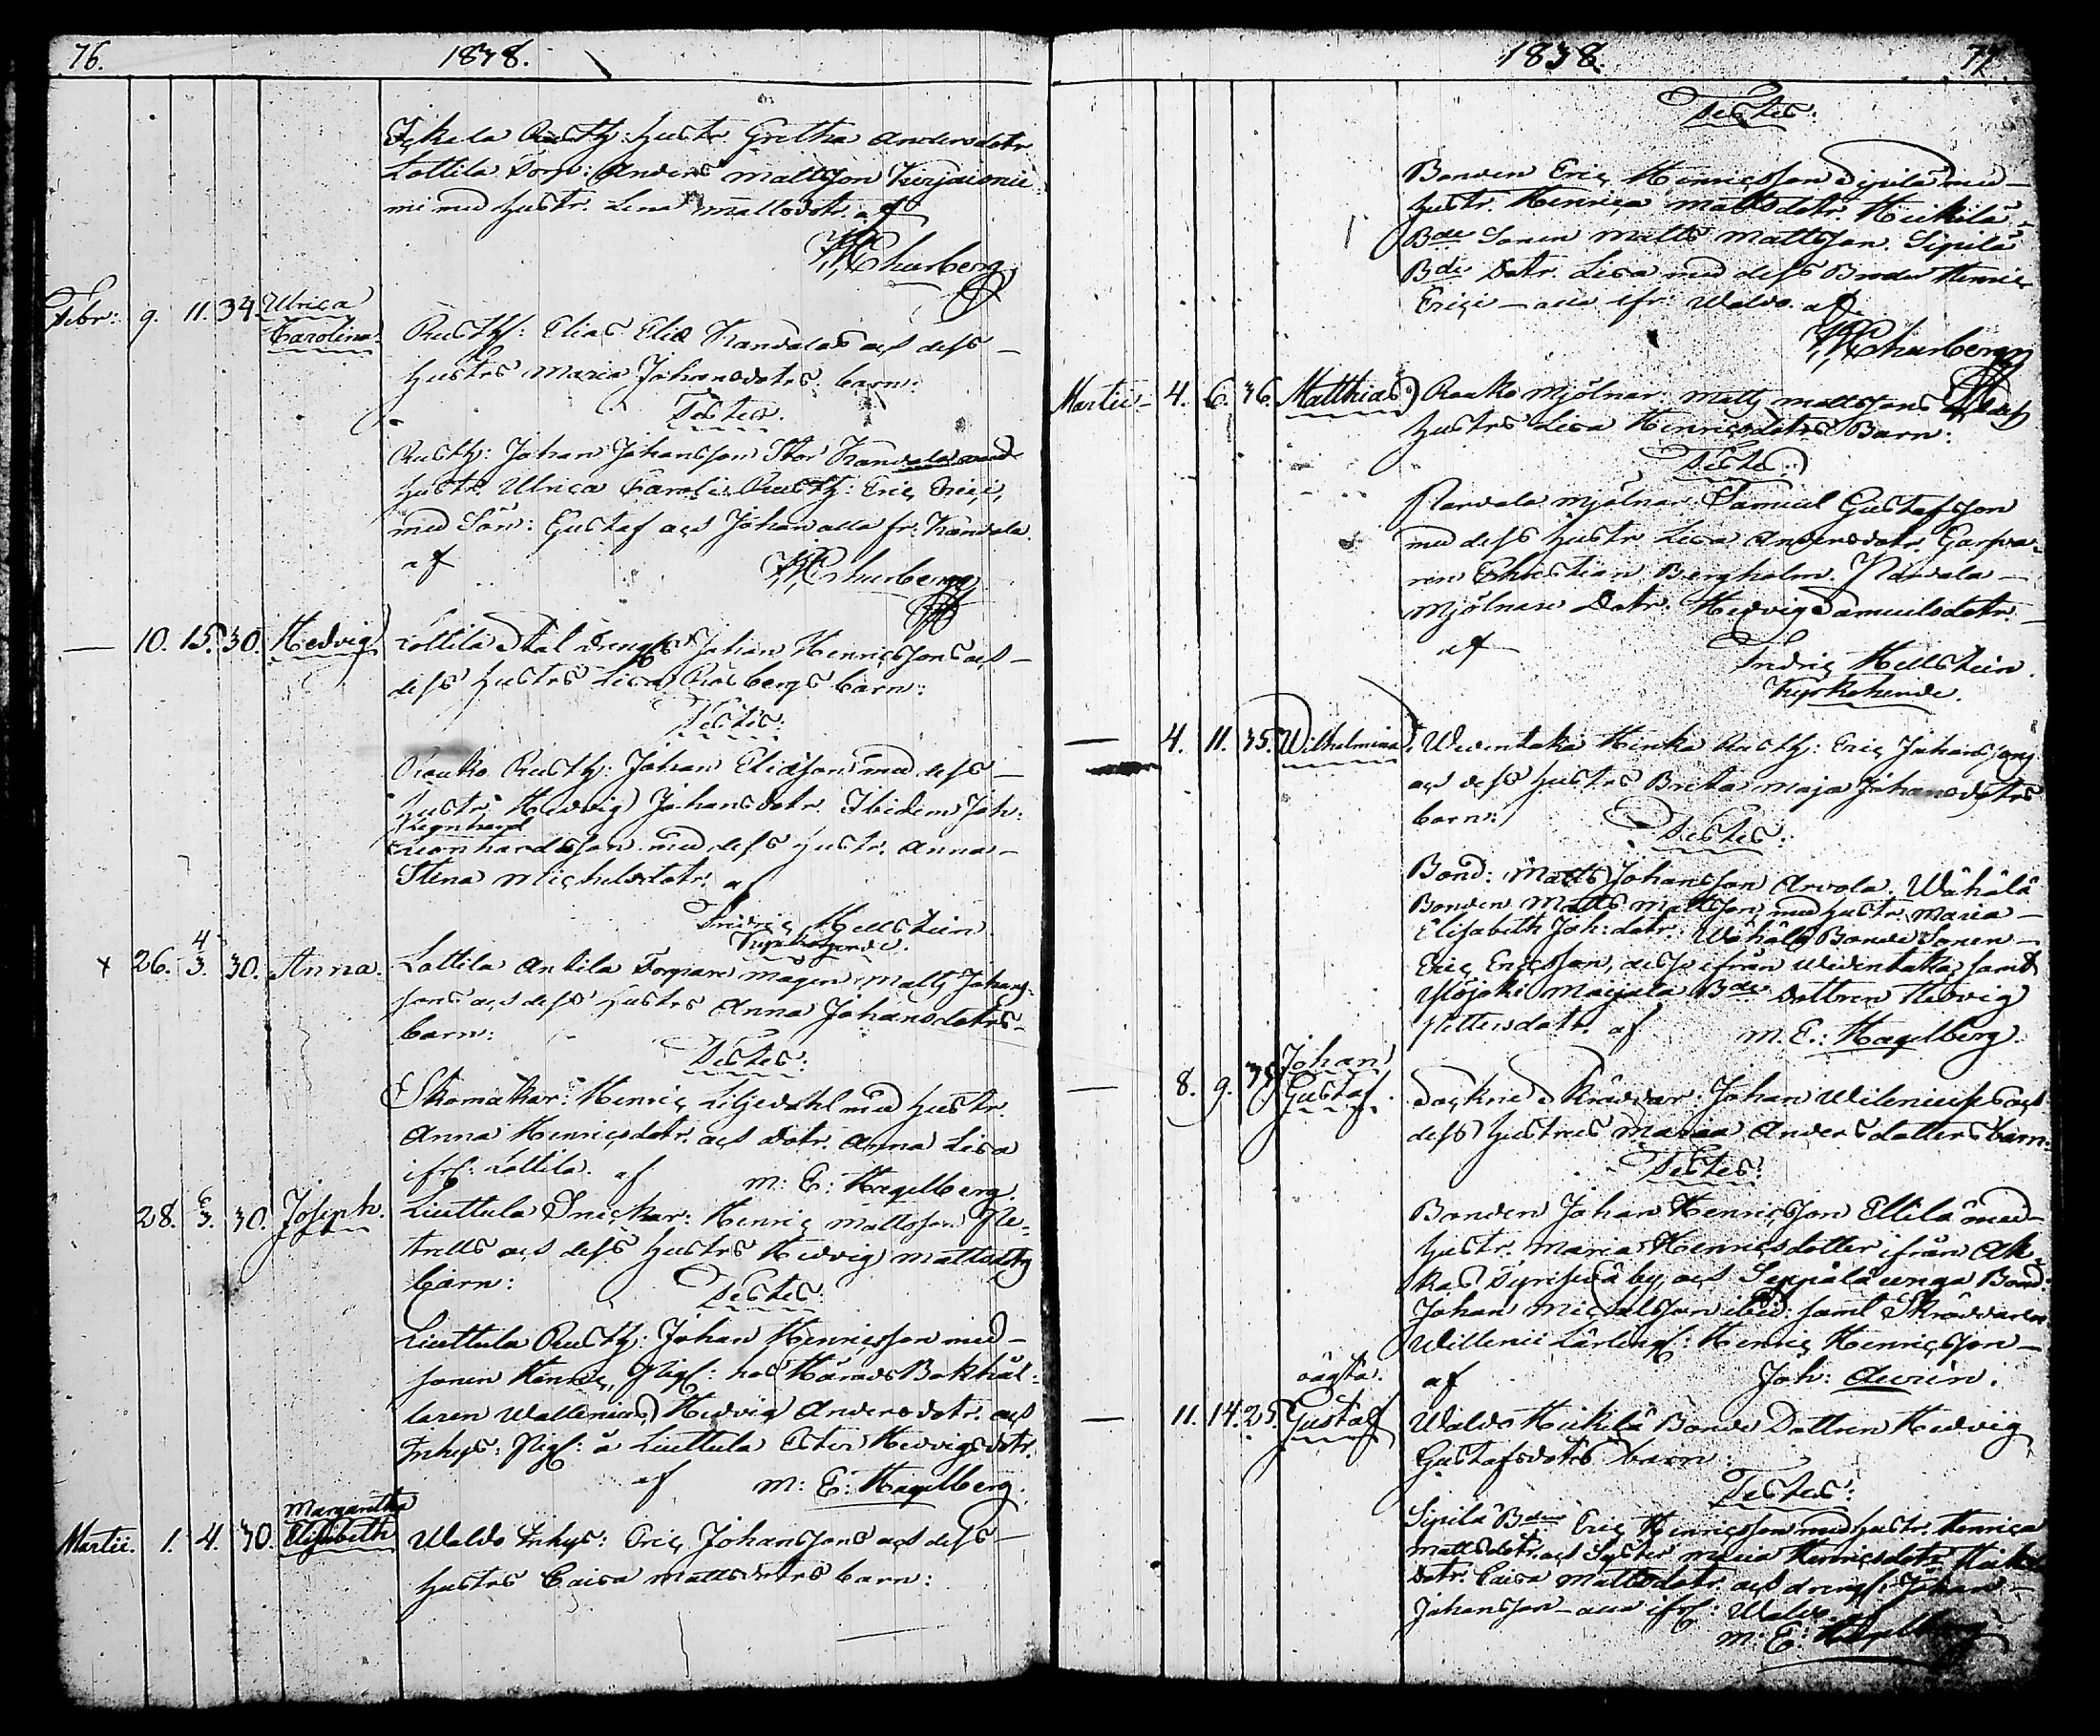 76.
1838.
Hustr: Gretha Andersdotr
Lottila Torp: Anders Mattsson Kurjennie-
mi med hustr. Lena Mattsdotr. af
Churberg
Febr: 9. 11. 34. Ulrica
Carolina.
Rusth: Elias Elis Kandolas och dess
hustrs Maria Johansdotrs barn:
Testes.
Rusth: Johan Johansson Stor Kandola med
hustr Ulrica Caroli. Rusth: Eric Erici,
med Sön: Gustaf och Johan alla fr: Kandola
af
Churberg
— 10. 15. 30. Hedvig
Lottila Drengs Johan Henricssons och
dess hustrs Lisa Rosbergs barn:
Testes:
Rauko Rusth: Johan Eliasson med dess
hustr Hedvig Johansdotr. Ibidem Joh:
Leonhard
Leonhardsson med dess hustr. Anna
Stina Michelsdotr. af
Fredric Hellstein
Kyrkoherde.
x 26. 4/3. 30. Anna.
Lottila Anttila Torpare mågen Matts Johans-
sons och dess hustrs Anna Johansdotrs
barn:
Testes:
Skomakar: Henric Liljedahl med hustr
Anna Henricsdotr. och dotr. Anna Lisa
ifr: Lottila. af M: E: Hagelberg.
28. 6/3. 30. Joseph.
Liuttula Snickar: Henric Mattsson
och dess hustrs Hedvig Mattsdotrs
barn:
Testes:
Liuttula Rusth: Johan Henricsson med
sonen Henric, Pig: hos Härads Bokhål-
laren Wallenius Hedvig Andersdotr. och
Inhys: Pig: å Liuttula Ester Hedvigsdotr.
af M: E: Hagelberg.
Martii. 1. 4. 30. Margaretha
Elisabeth
Waldo Inhys: Eric Johanssons och dess
hustrs Caisa Mattsdotrs barn:
1838.
77.
Testes:
Bonden Eric Henricsson Sipilä med
hustr. Henrica Mattsdotr. Heikilä
Bde Sonen Matts Mattsson. Sipilä
Bde Dotr. Lisa med dess Broder Henric
Erici — alla ifr: Waldo. af
Churberg
Martii 4. 6. 36. Matthias
Rauko Mjölnar: Matts Mattssons och dess
hustrs Lisa Henricsdotrs Barn:
Testes:
Narvala Mjölnar: Samuel Gustafsson
med dess hustr Lisa Andersdotr. Garfva-
ren Christian Bergholm. Narvala
Mjölnare Dotr. Hedvig Samuelsdotr.
af
Fredric Hellstein
Kyrkoherde.
— 4. 11. 35. Wilhelmina.
Wedentaka Hinka Rusth: Eric Johanssons
och dess hustrs Brita Maja Johansdotrs
barn:
Testes:
Bond: Matts Johansson Arvola. Wähälä
Bonden Matts Mattsson med hustr. Maria
Elisabeth Joh: dotr. Wähälä Bonde Sonen
Eric Ericsson, desse ifrån Wedentaka, samt
Ylöjoki Maijala Bde Dottren Hedvig
Pettersdotr. af M. E.: Hagelberg.
— 8. 9. Johan
Gustaf.
Skräddar: Johan Wilenii och
dess hustrus Maria Anders dotters barn:
Testes:
Bonden Johan Henricsson Ellilä med
hustr. Maria Henricsdotter ifrån Ak
kas by, och Seppälä unga Bond:
Johan Michelsson samt Skräddaren
Willenii Lärling: Henric Henricsson
af Joh: Aurén.
oägta.
— 11. 14. 25. Gustaf
Waldo Heikilä Bonde Dottren Hedvig
Gustafsdotrs barn:
Testes:
Sipilä Bden Eric Henricsson med hustr. Henrica
Mattsdotr. och Syster Maria Henricsdotr. Heikilä
Dotr. Caisa Mattsdotr. och dreng: Johan
Johansson — alla ifr: Waldo. af
M: E: Hagelberg